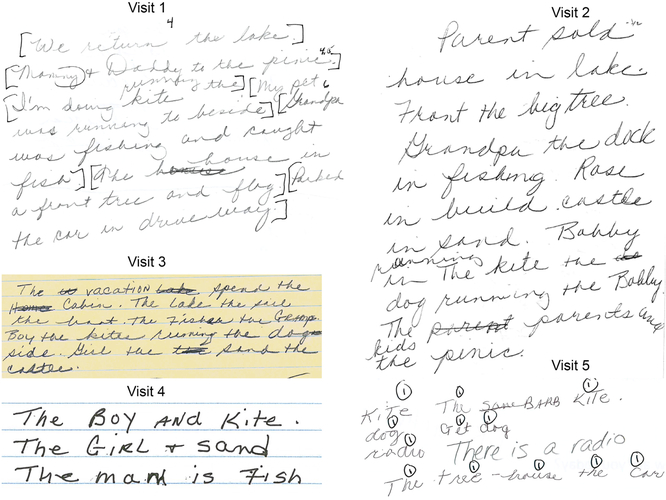 Visit 1
4
[We return the lake.]
4,5
[Mommy & Daddy to the pinic.]
running the
[I'm doing kite] [My pet 6
was running to beside] [Grandpa
was fishing and caught
fish] [The house house in
a front tree and flag] [Parked
the car in drive way.]
Visit 2
Parent sold
house in lake.
Front the big tree.
Grandpa the dock
in fishing. Rose
in build castle
in sand. Bobby
running
in The kite the
dog running the Bobby.
The parent parents and
kids
the pinic.
Visit 3
The vacation lake spend the
Home Cabin. The lake the sail
the boat the Fisher the
Boy the kites running the dog
side. Girl the the sand the
castle.
Visit 4
The Boy AND Kite.
The GIRL + sand
The man is Fish
Visit 5
1 1 1
Kite The same BARB Kite.
1 1
dog Get dog
radio There is a radio
1 1 1 1 1
The tree - house the Car